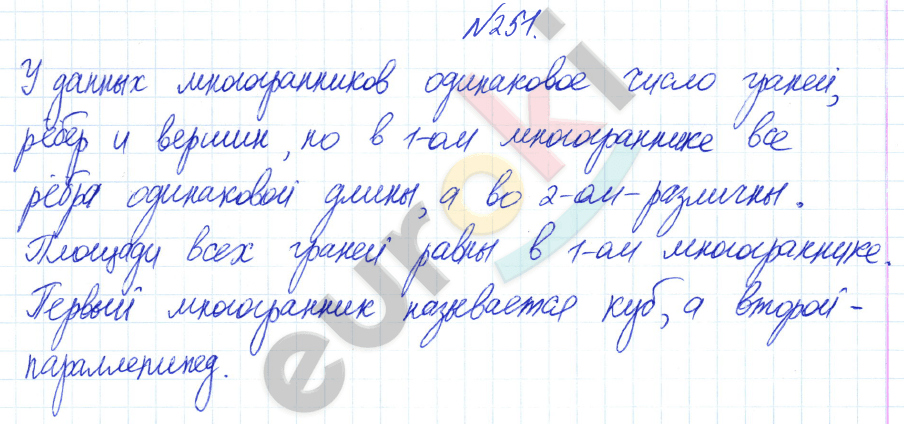 №251.
У данных многогранников одинаковое число граней,
рёбер и вершин, но в 1-ом многограннике все
рёбра одинаковой длины, а во 2-ом - различны.
Площади всех граней равны в 1-ом многограннике.
Первый многогранник называется куб, а второй -
параллепипед.
euroki